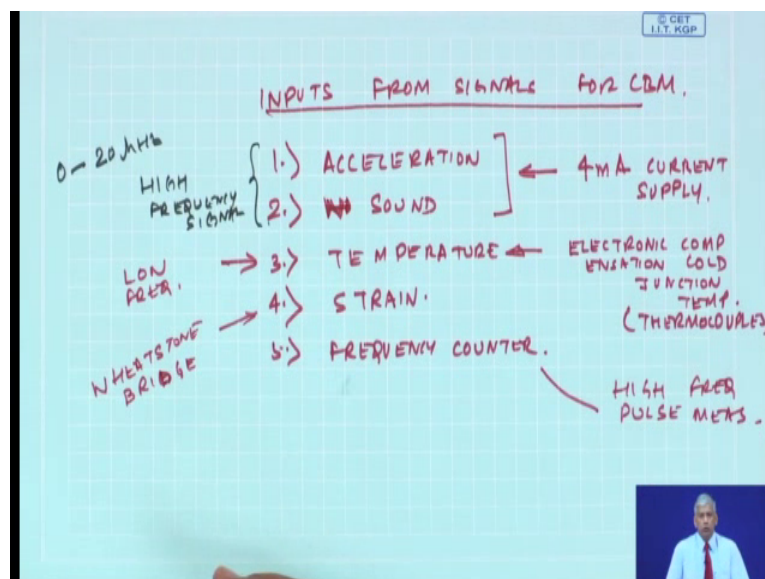 © CET
I.I.T. KGP
INPUTS FROM SIGNALS FOR CBM.
0 - 20 kHz
HIGH
FREQUENCY
SIGNAL
1.) ACCELERATION
2.) SOUND
4mA CURRENT
SUPPLY.
LOW
FREQ.
3.) TEMPERATURE
ELECTRONIC COMP
ENSATION COLD
JUNCTION
TEMP.
(THERMOCOUPLES
WHEATSTONE
BRIDGE
4.) STRAIN.
5.) FREQUENCY COUNTER.
HIGH FREQ
PULSE MEAS.